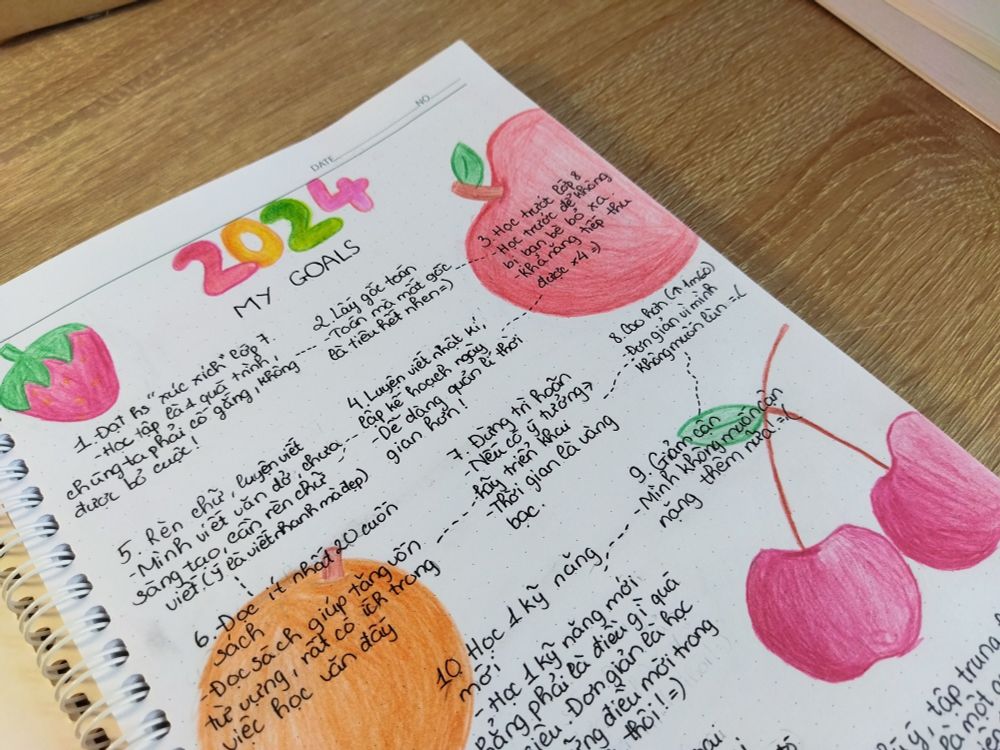 NO
DATE
2024
MY GOALS
1. Đạt hs "xúc xích" lớp 7
- Học tập là 1 quá trình,
chúng ta phải cố gắng, không
được bỏ cuộc!
2. Lấy gốc toán
- Toán mà mất gốc
là tiêu hết nhen =)
3. Học trước lớp 8
- Học trước để không
bị bạn bè bỏ xa
- Khả năng tiếp thu
được x4 =)
4. Luyện viết nhật kí,
lập kế hoạch ngày
- Dễ dàng quản lí thời
gian hơn!
5. Rèn chữ, luyện viết
- Mình viết văn dở, chưa
sáng tạo, cần rèn chữ
viết (ý là viết nhanh mà đẹp)
6. Đọc ít nhất 20 cuốn
sách
- Đọc sách giúp tăng vốn
từ vựng, rất có ích trong
việc học văn đấy
7. Đừng trì hoãn
- Nếu có ý tưởng →
hãy triển khai
- Thời gian là vàng
bạc.
8. Cao hơn (↑ 1m60)
- Đơn giản vì mình
không muốn lùn =(
9. Giảm cân
- Mình không muốn cân
nặng thêm nữa! =(
10. Học 1 kỹ năng
mới
- Học 1 kỹ năng mới
phải là điều gì quá
Đơn giản là học
điều mới trong
thôi! =)
ý, tập trung
là một